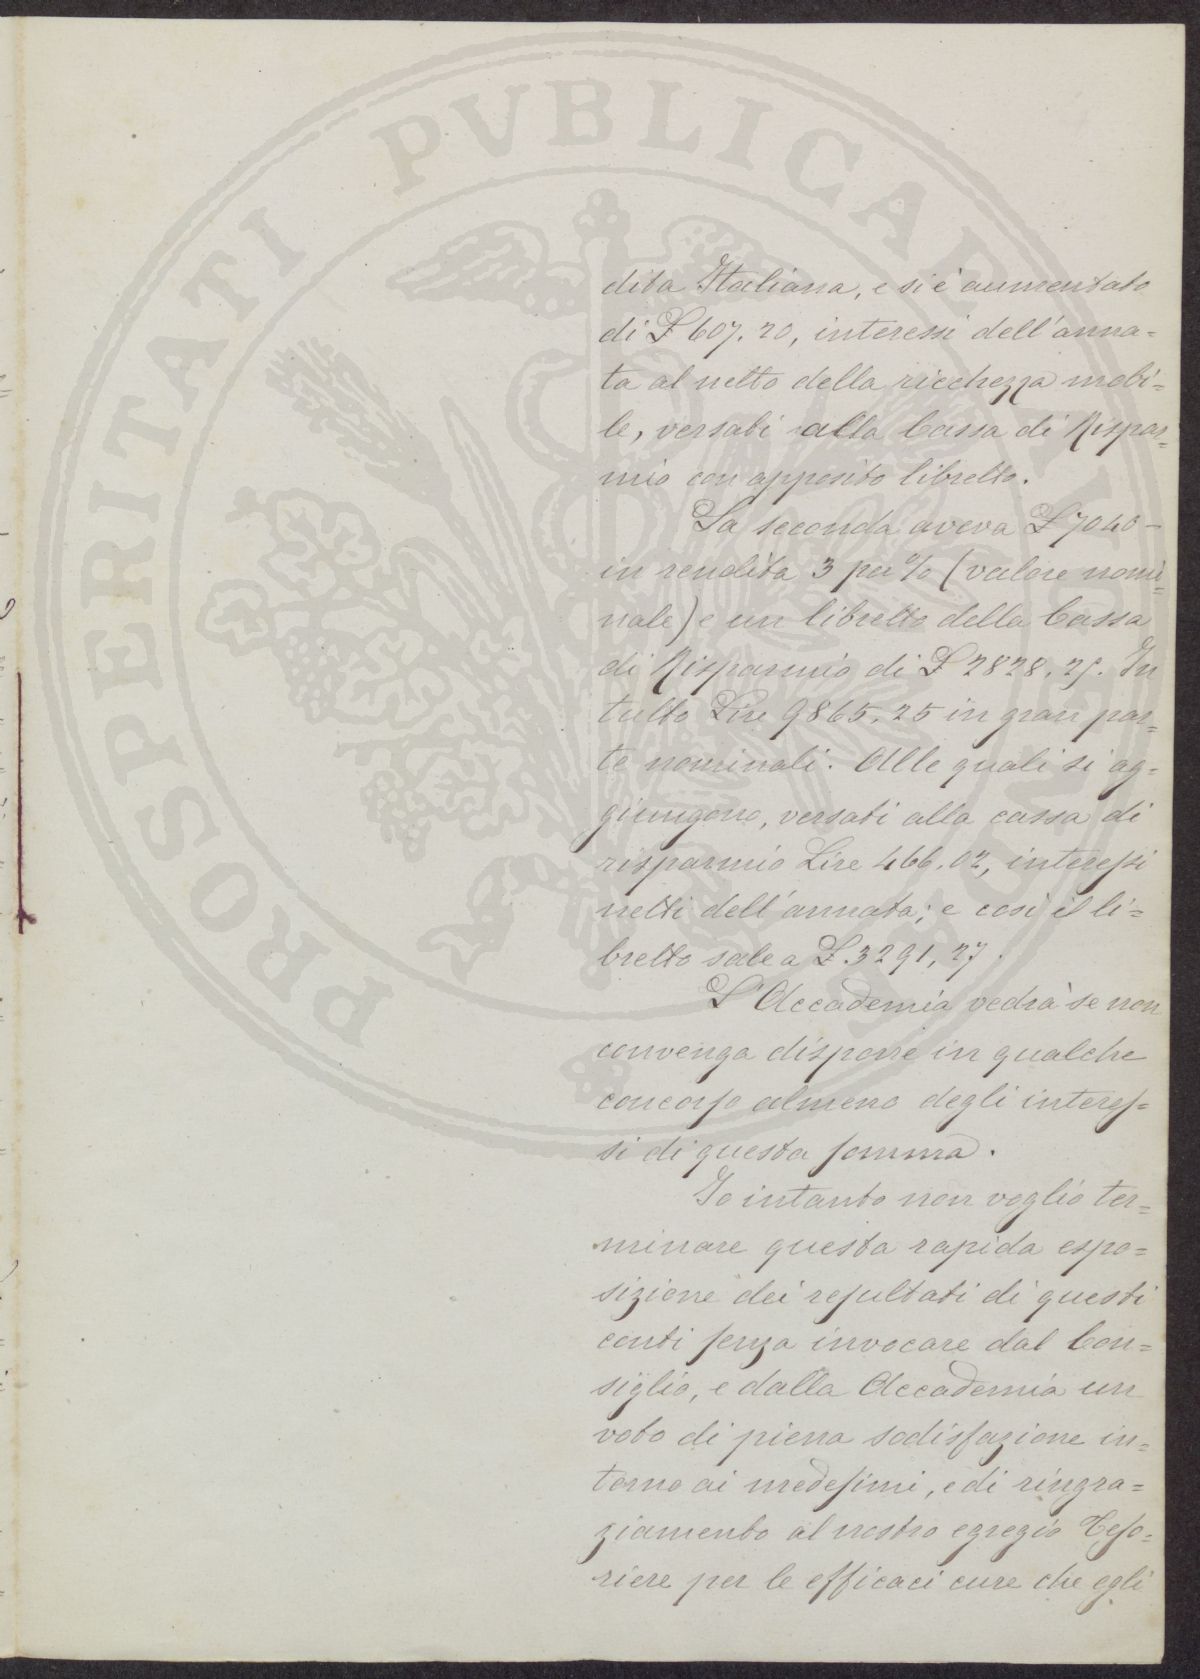 PROSPERITATI PVBLICAE AVGENDAE
dita Italiana, e si è aumentato
di £ 607. 20, interessi dell'anna=
ta al netto della ricchezza mobi=
le, versati alla Cassa di Rispar=
mio con apposito libretto.
La seconda aveva £ 7040 -
in rendita 3 per % (valore nomi=
nale) e un libretto della Cassa
di Risparmio di £ 2828. 25. In
tutto Lire 9865. 25 in gran par=
te nominali. Alle quali si ag=
giungono, versati alla cassa di
risparmio Lire 466. 02, interessi
netti dell'annata; e così il li=
bretto sale a £. 3291, 27.
L'Accademia vedrà se non
convenga disporre in qualche
concorso almeno degli interes=
si di questa somma.
Io intanto non voglio ter=
minare questa rapida espo=
sizione dei resultati di questi
conti senza invocare dal Con=
siglio, e dalla Accademia un
voto di piena sodisfazione in=
torno ai medesimi, e di ringra=
ziamento al nostro egregio Teso=
riere per le efficaci cure che egli